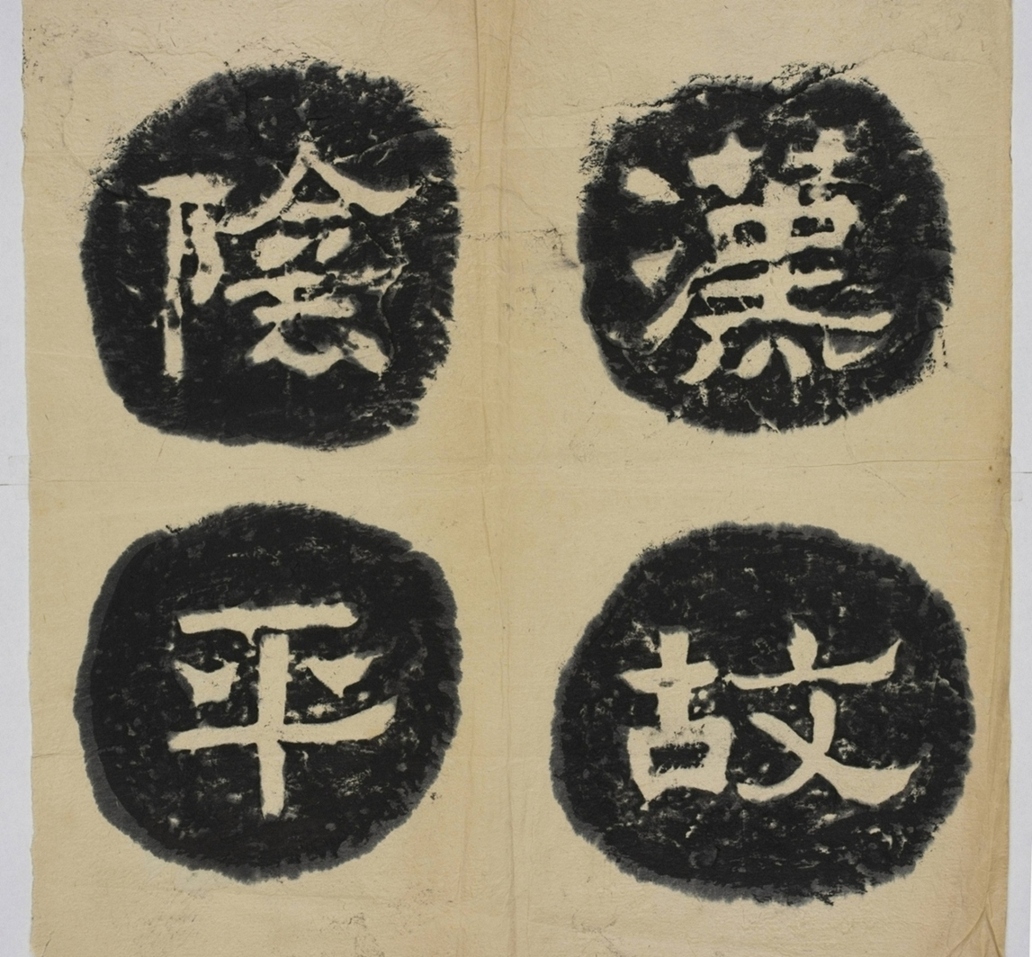 漢故
陰平